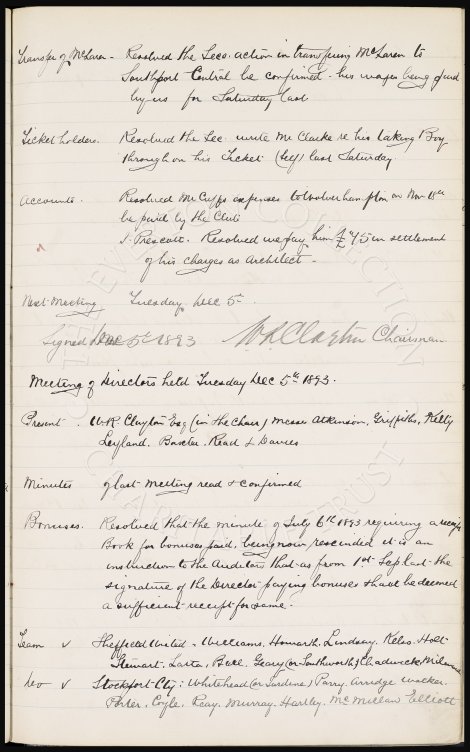 Transfer of McLaren - Resolved the Secs. action in transfering McLaren to
Southport Central be confirmed - his wages being paid
by us for Saturday last
Ticket holders. Resolved the Sec. write Mr Clarke re his taking Boy
through on his Ticket (self) last Saturday.
Accounts. Resolved Mr Cuffs expenses to Wolverhampton on Nov 11th
be paid by the Club
J. Prescott. Resolved we pay him £45 in settlement
of his charges as Architect -
Next Meeting Tuesday Dec 5th.
Signed Dec 5th 1893 W.R. Clayton Chairman
Meeting of Directors held Tuesday Dec 5th 1893.
Present. W.R. Clayton Esq (in the Chair) Messrs Atkinson, Griffiths, Kelly
Leyland, Baxter, Read & Davies
Minutes of last meeting read & confirmed
Bonuses. Resolved that the minute of July 6th 1893 requiring a receipt
Book for bonuses paid, being now rescinded it is an
instruction to the Auditors that as from 1st Sep last the
signature of the Director paying bonuses shall be deemed
a sufficient receipt for same -
Team v Sheffield United - Williams, Howarth, Lindsay, Kelso, Holt
Stewart, Latta, Bell, Geary (or Southworth) Chadwick, Milward
Do v Stockport Cty: Whitehead (or Jardine) Parry, Arridge, Walker
Porter, Coyle, Reay, Murray, Hartley, McMillan Elliott
THE EVERTON COLLECTION
CHARITABLE TRUST